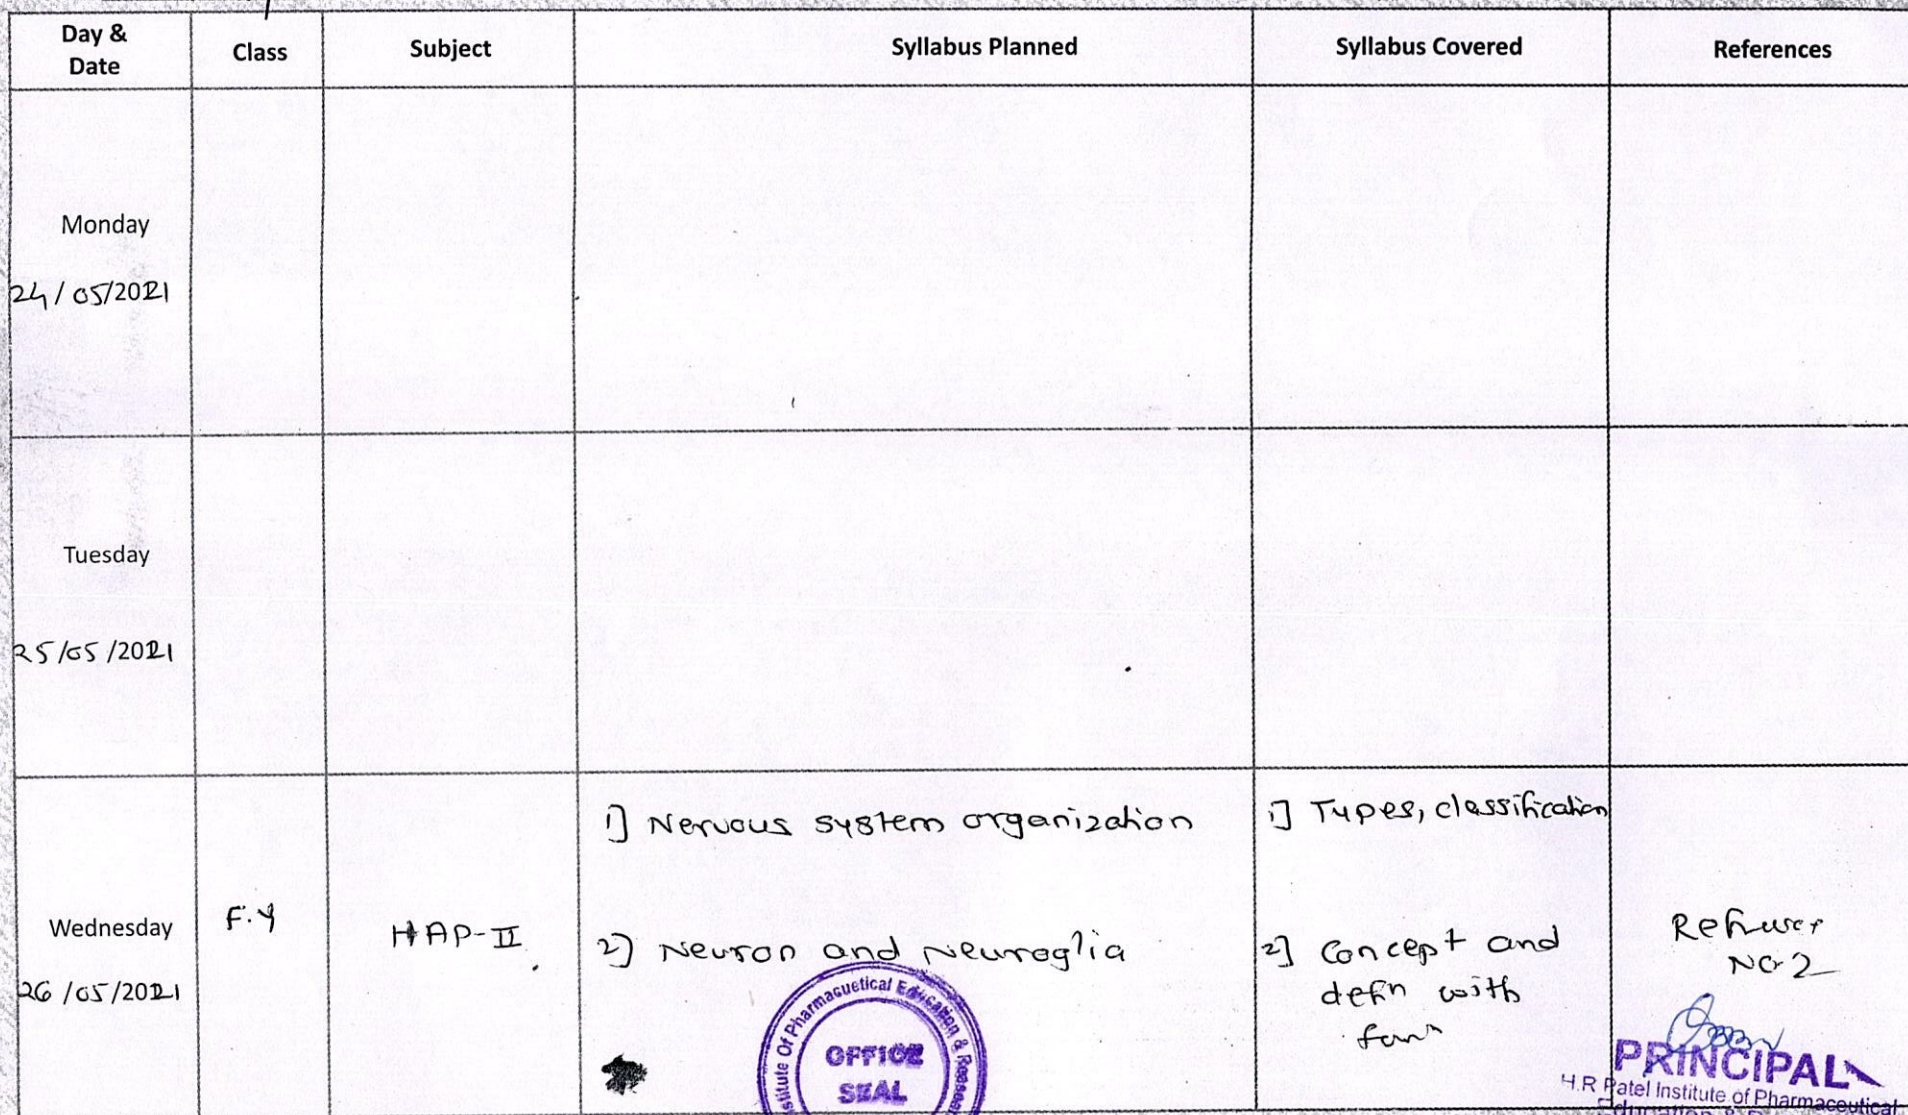 Day &
Date
Class
Subject
Syllabus Planned
Syllabus Covered
References
Monday
24/05/2021
Tuesday
25/05/2021
Wednesday
26/05/2021
F.Y
HAP-II
1] Nervous system organization
2] Neuron and Neuroglia
1] Types, classification
2] Concept and
defn with
No 2
stitute Of Pharmacuetical Education & Resear
OFFICE
SEAL
PRINCIPAL
H.R Patel Institute of Pharmaceutical